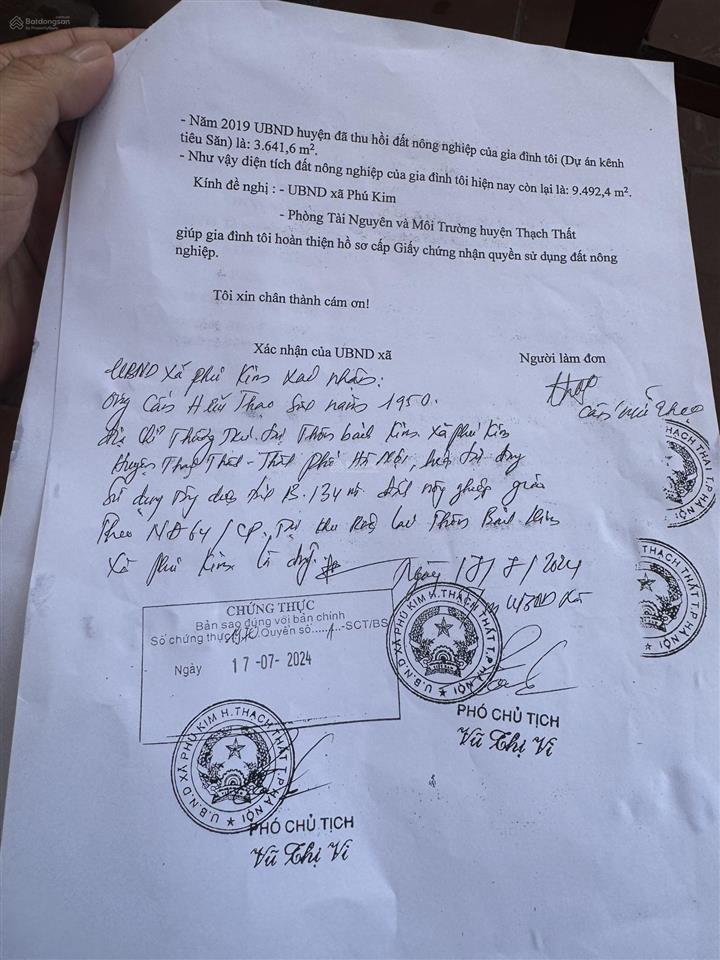 Batdongsan
by PropertyGuru
- Năm 2019 UBND huyện đã thu hồi đất nông nghiệp của gia đình tôi (Dự án kênh
tiêu Săn) là: 3.641,6 m².
- Như vậy diện tích đất nông nghiệp của gia đình tôi hiện nay còn lại là: 9.492,4 m².
Kính đề nghị : - UBND xã Phú Kim
- Phòng Tài Nguyên và Môi Trường huyện Thạch Thất
giúp gia đình tôi hoàn thiện hồ sơ cấp Giấy chứng nhận quyền sử dụng đất nông
nghiệp.
Tôi xin chân thành cám ơn!
Xác nhận của UBND xã
Người làm đơn
UBND Xã phú Kim xác nhận:
Ông Cấn Hữu Thạo Sinh năm 1950.
Thường Trú tại Thôn bách Kim xã phú Kim
Huyện Thạch Thất - Thành phố Hà Nội,
Sử dụng 13.134 m² đất nông nghiệp giao
Theo NĐ 64/CP, Tại Thôn Bách Kim
Xã phú Kim là đúng.
Cấn Hữu Thạo
Ngày
/2024
UBND Xã
CHỨNG THỰC
Bản sao đúng với bản chính
Số chứng thực Quyển số -SCT/BS
Ngày 17-07-2024
U.B.N.D XÃ PHÚ KIM H.THẠCH THẤT T.P HÀ NỘI
PHÓ CHỦ TỊCH
Vũ Thị Vi
U.B.N.D XÃ PHÚ KIM H.THẠCH THẤT T.P HÀ NỘI
PHÓ CHỦ TỊCH
Vũ Thị Vi
THẠCH THẤT T.P HÀ NỘI
THẠCH THẤT T.P HÀ NỘI